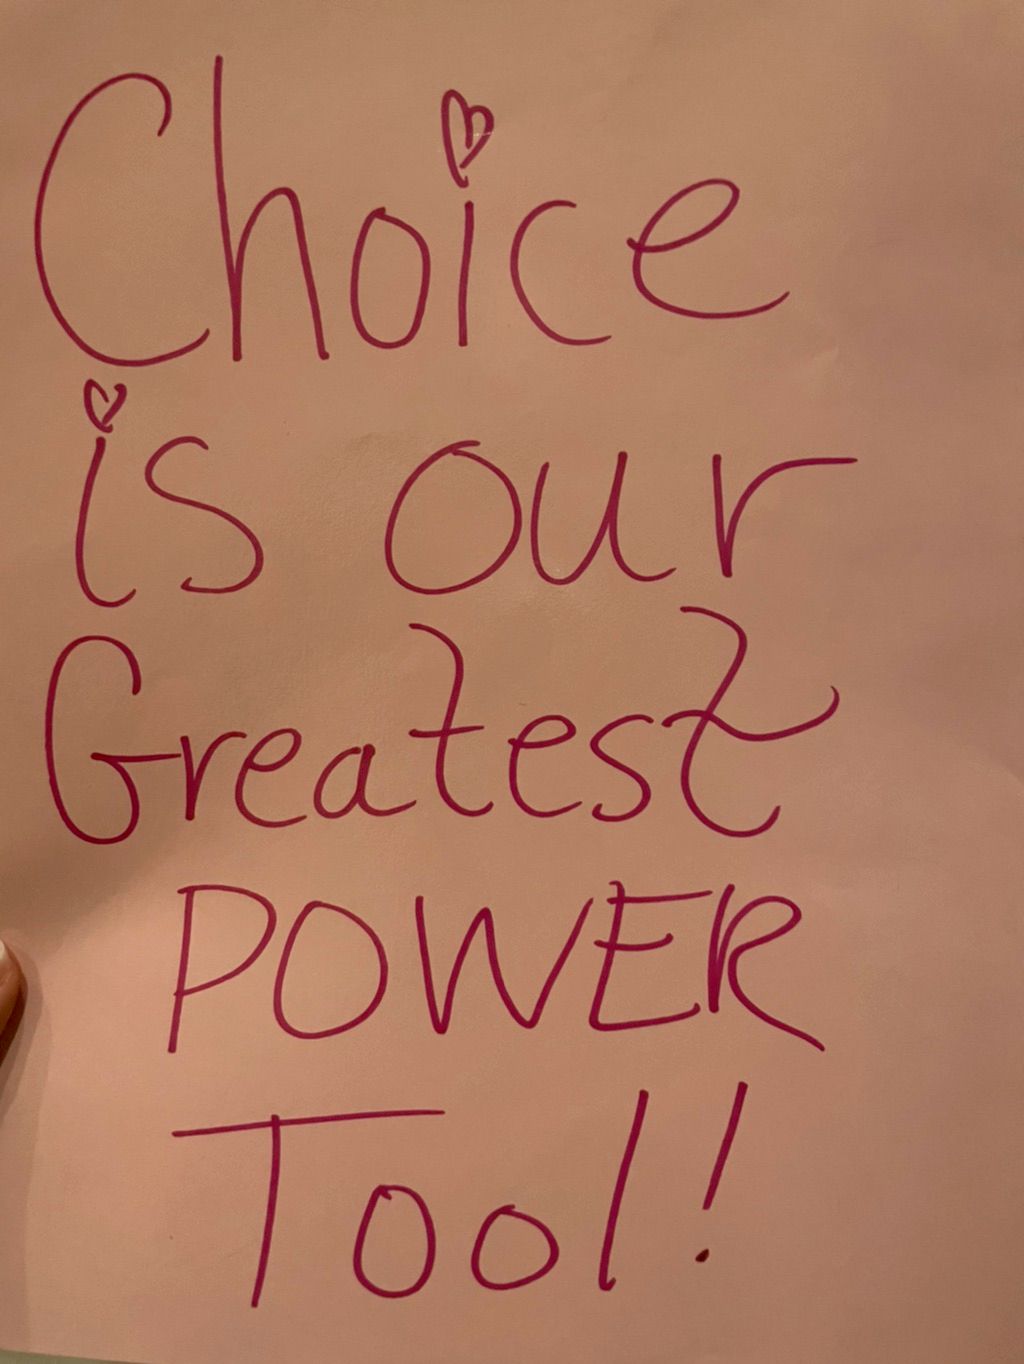 Choice
is our
Greatest
POWER
Tool!